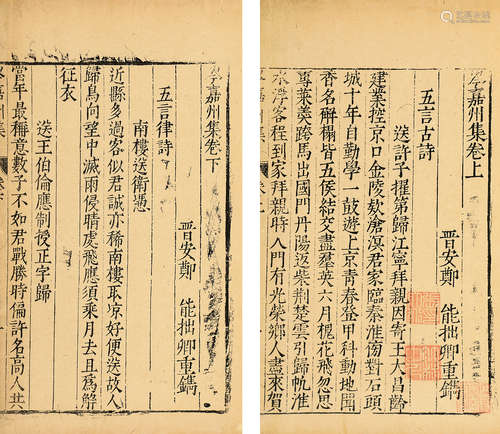 岑嘉州集卷上
晋安鄭 能拙卿重鐫
五言古詩
送許子擢第歸江寧拜親因寄王大昌齡
建業控京口金陵欵滄溟君家臨秦淮傍對石頭
城十年自勤學一鼓遊上京青春登甲科動地聞
香名解榻皆五侯結交盡羣英六月槐花飛忽思
蓴菜羮跨馬出國門丹陽返柴荆楚雲引歸帆淮
水浮客程到家拜親時入門有光榮鄉人盡來賀
岑嘉州集卷下
晋安鄭 能拙卿重鐫
五言律詩
南樓送衛憑
近縣多過客似君誠亦稀南樓取凉好便送故人
歸鳥向望中滅雨侵晴處飛應須乘月去且爲解
征衣
送王伯倫應制授正字歸
當年最稱意數子不如君戰勝時偏許名高人共